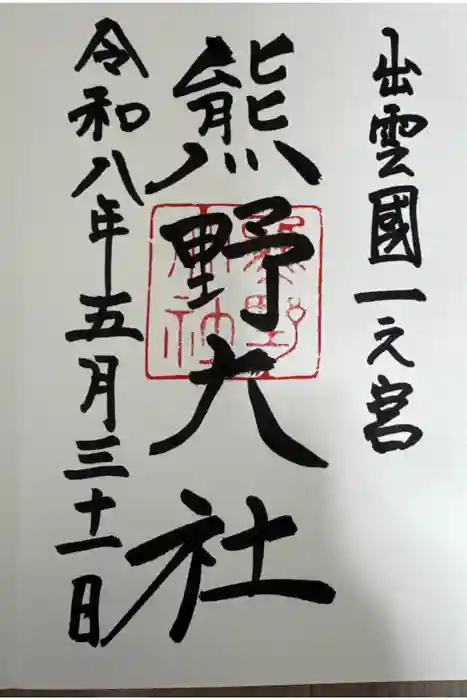 出雲國一之宮
熊野大社
熊野大社
令和八年五月三十一日